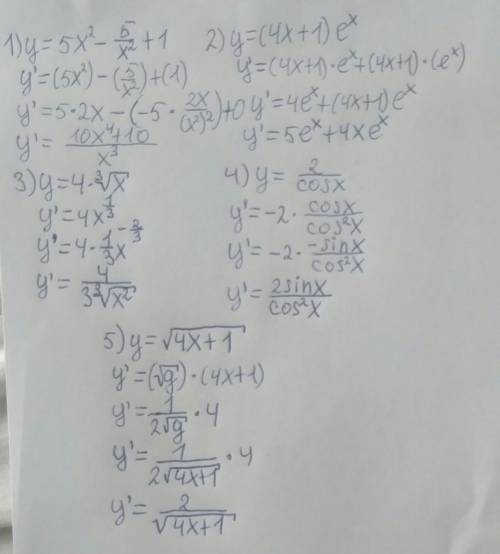 1) y = 5x² - 5/x² + 1
y' = (5x²) - (5/x²) + (1)
y' = 5·2x - (-5 · 2x/(x²)²) + 0
y' = 10x⁴+10/x³
2) y = (4x+1) eˣ
y' = (4x+1)·eˣ + (4x+1)·(eˣ)
y' = 4eˣ + (4x+1)eˣ
y' = 5eˣ + 4xeˣ
3) y = 4·∛x
y' = 4x^(1/3)
y' = 4·1/3 x^(-2/3)
y' = 4/3∛x²
4) y = 2/cosx
y' = -2 · cosx/cos²x
y' = -2 · -sinx/cos²x
y' = 2sinx/cos²x
5) y = √4x+1
y' = (√g)·(4x+1)
y' = 1/2√g · 4
y' = 1/2√4x+1 · 4
y' = 2/√4x+1